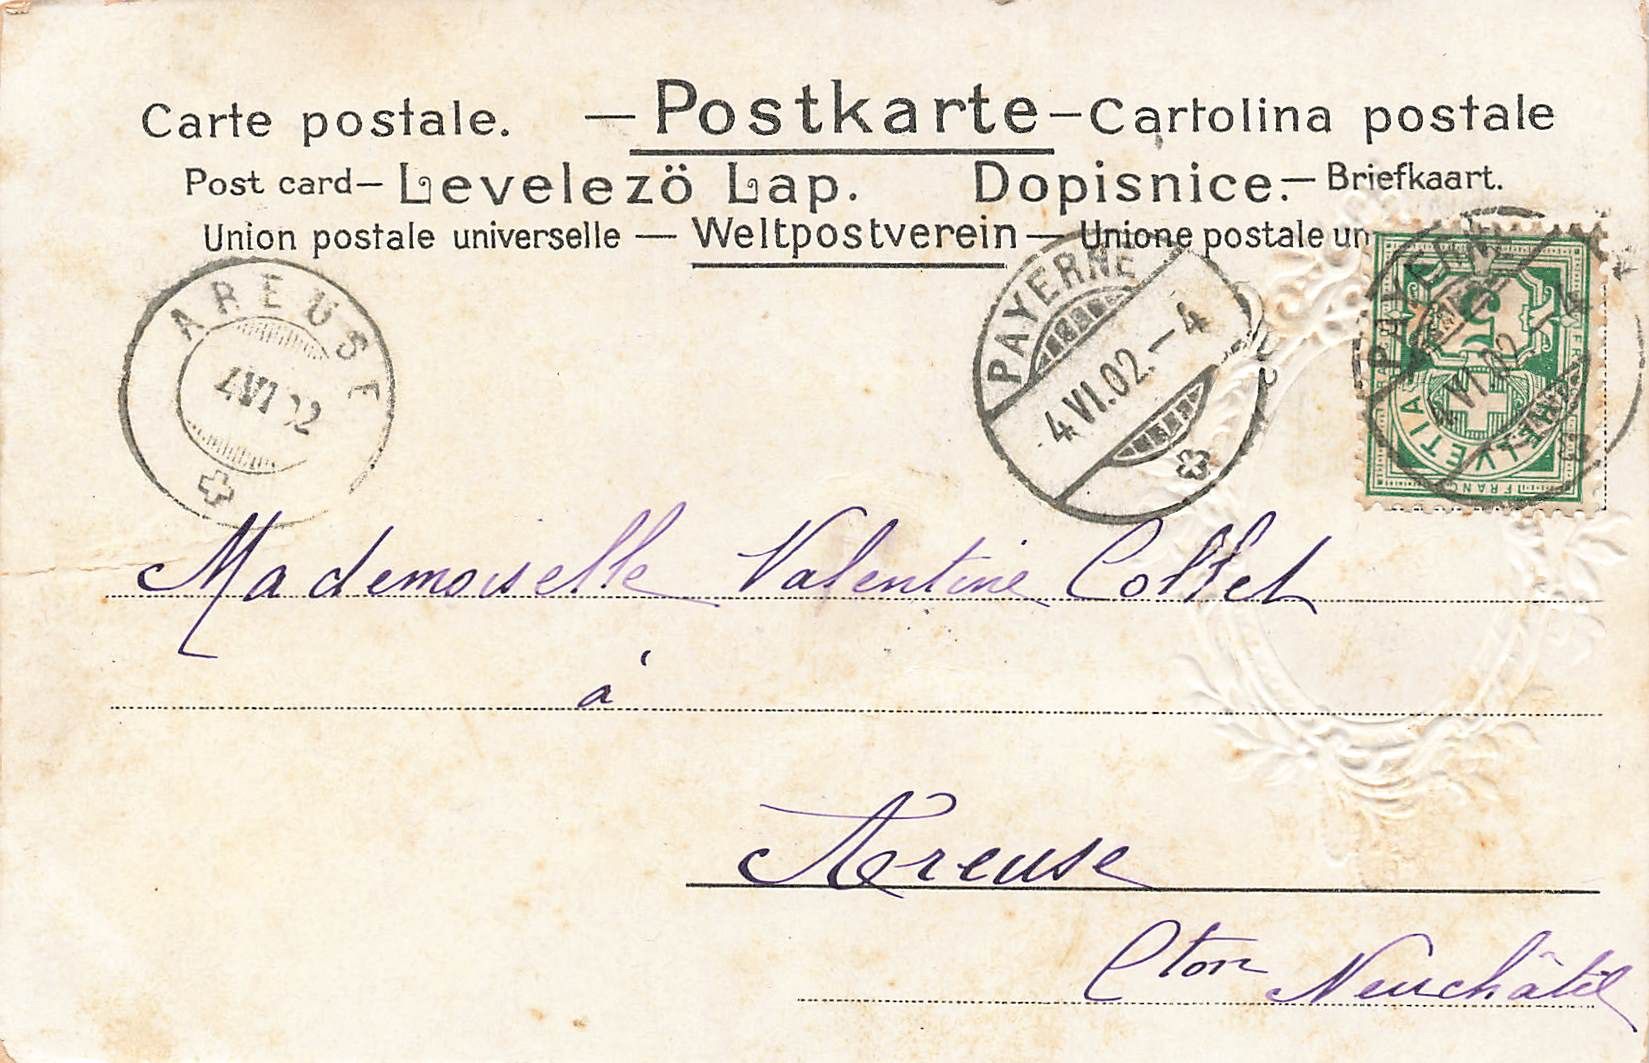 Carte postale. — Postkarte — Cartolina postale
Post card — Levelezö Lap. Dopisnice. — Briefkaart.
Union postale universelle — Weltpostverein — Unione postale un
AREUSE
4 VI 02
PAYERNE
4.VI.02.–4
PAYERNE
VI.02 4
5
FRANCO
HELVETIA
Mademoiselle Valentine Collet
à
Areuse
Cton Neuchâtel